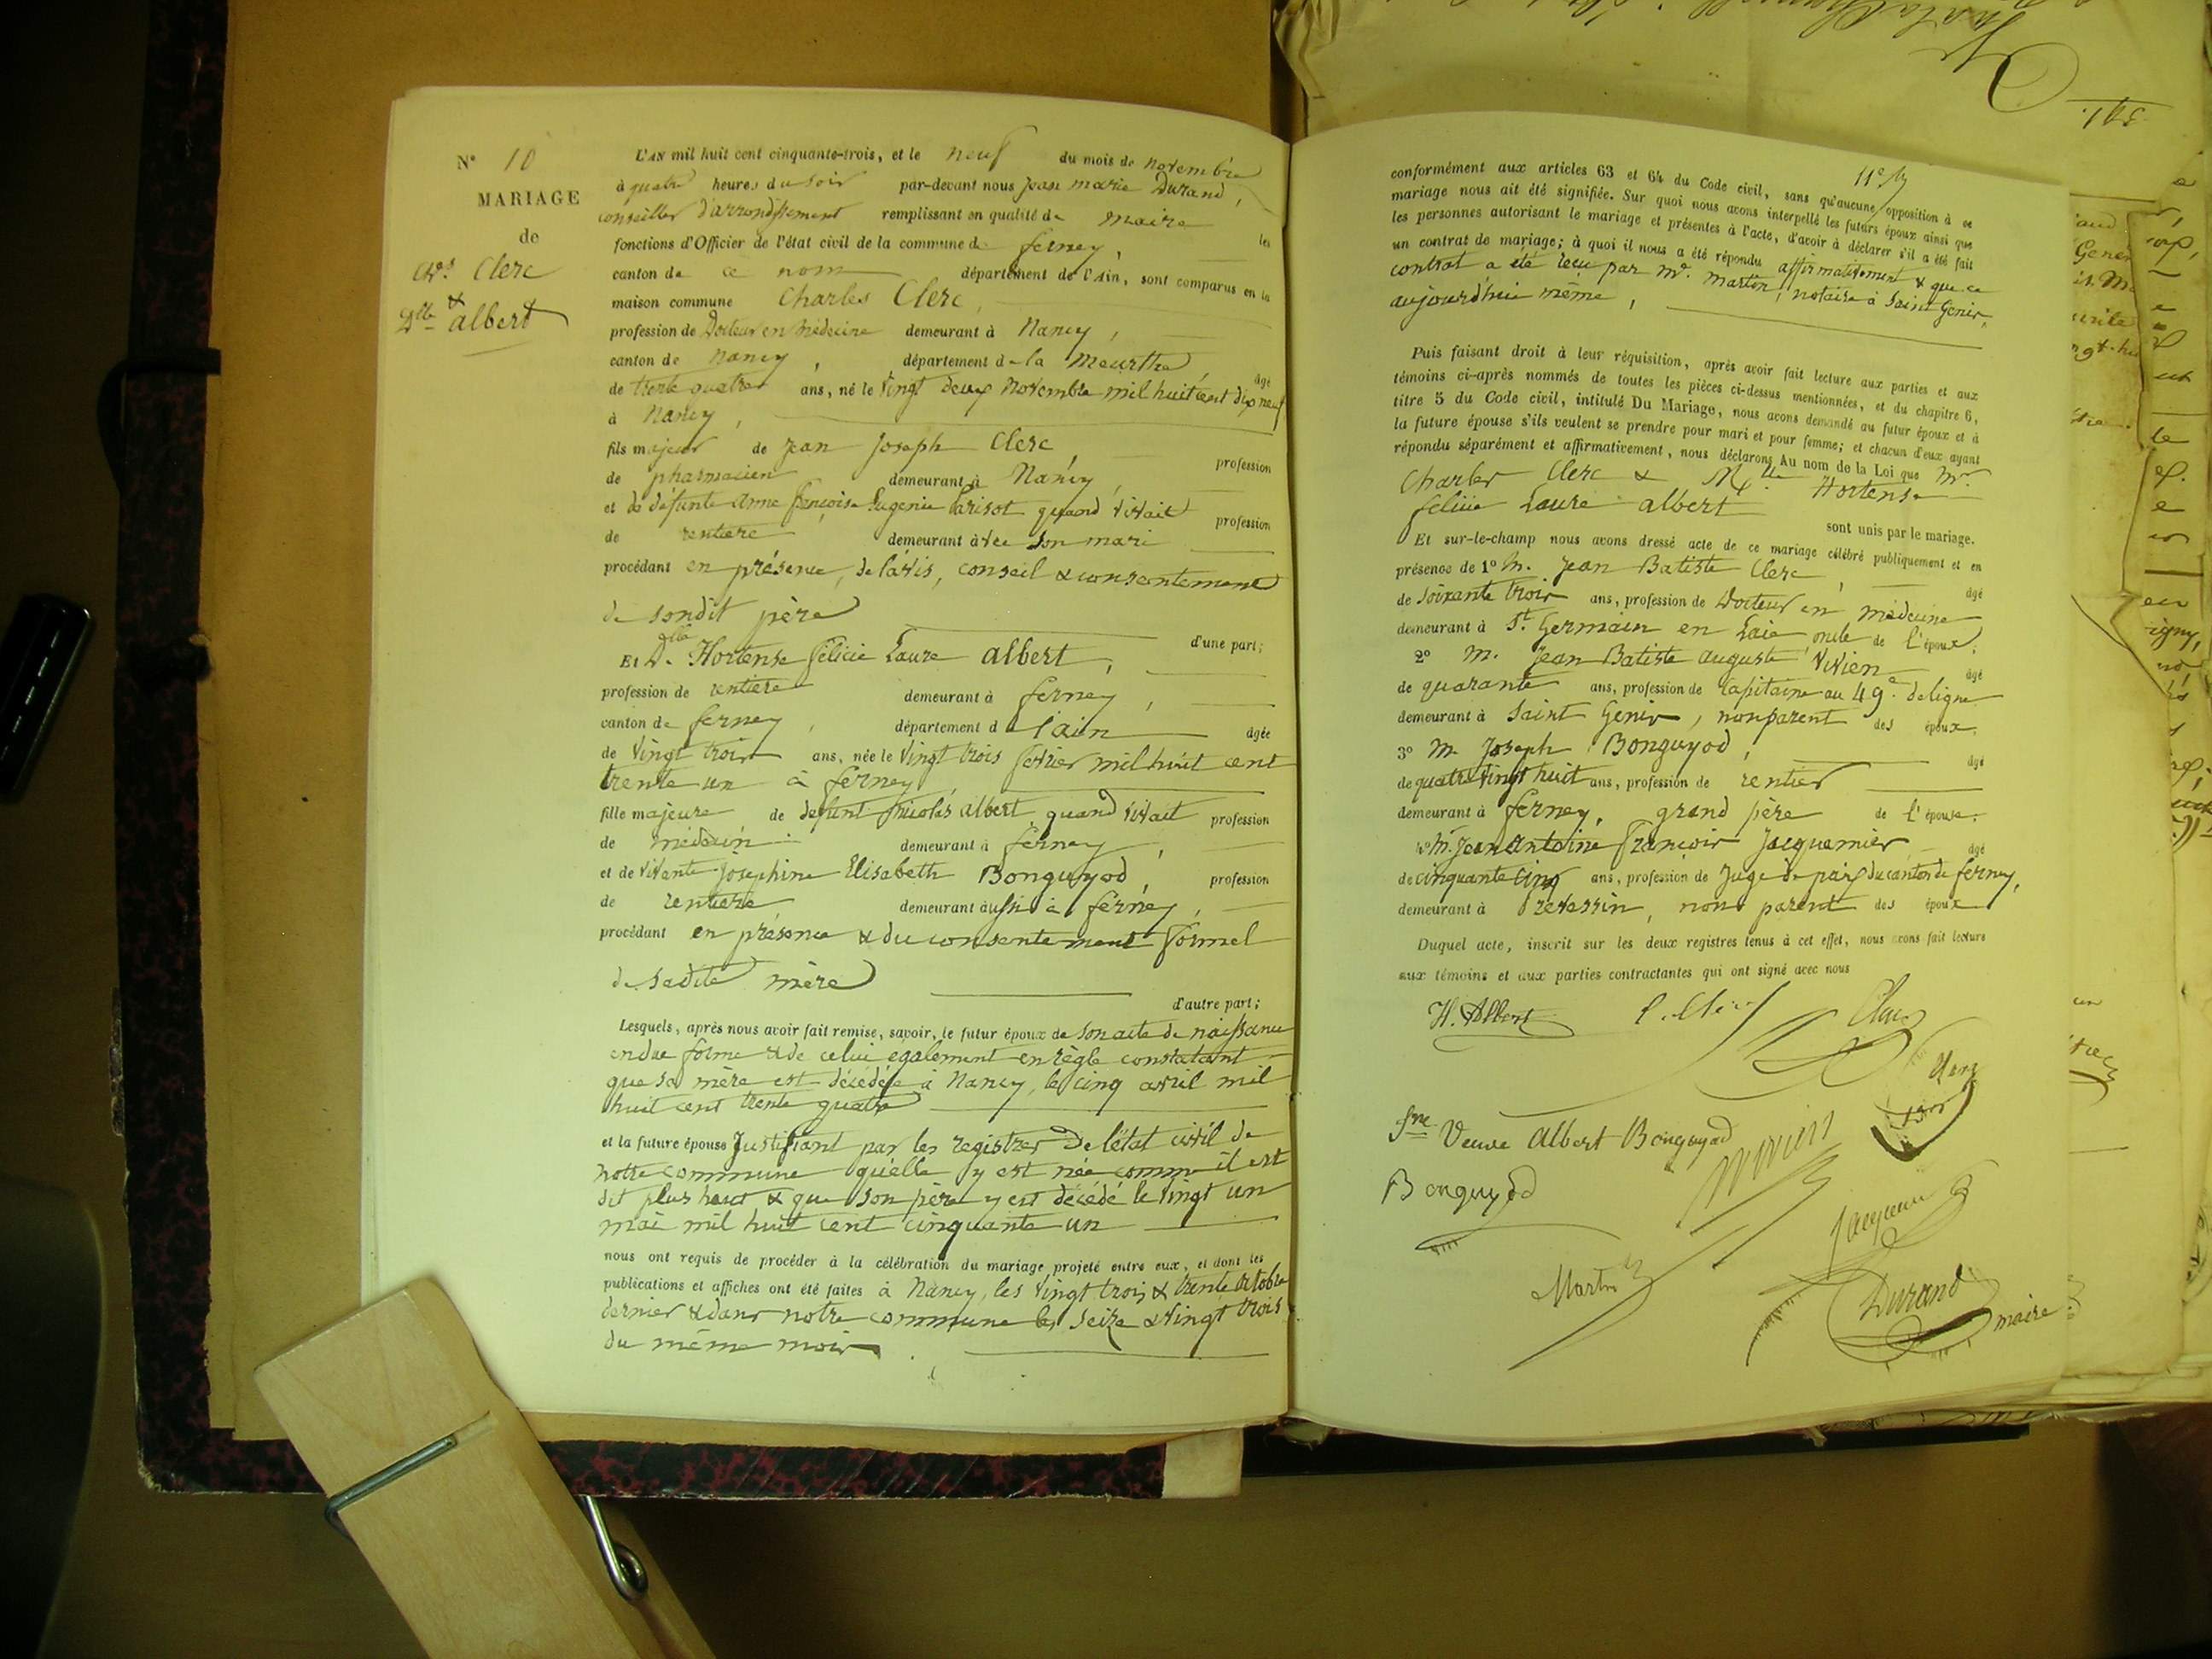 N° 10
MARIAGE
de
Mr. Clerc
&
Dlle albert
L'AN mil huit cent cinquante-trois, et le neuf du mois de novembre
à quatre heures du soir par-devant nous jean marie Durand,
conseiller d'arrondissement remplissant en qualité de maire les
fonctions d'Officier de l'état civil de la commune de ferney,
canton de ce nom département de l'Ain, sont comparus en la
maison commune Charles Clerc,
profession de Docteur en médecine demeurant à Nancy,
canton de nancy, département de la meurthe, âgé
de trente quatre ans, né le vingt deux novembre mil huit cent dix neuf
à nancy,
fils majeur de jean joseph Clerc, profession
de pharmacien demeurant à Nancy,
et de défunte anne françoise Eugenie Parisot quand vivait profession
de rentière demeurant avec son mari
procédant en présence, de l'avis, conseil & consentement
de sondit père
d'une part;
Et Dlle Hortense félicie Laure albert,
profession de rentière demeurant à ferney,
canton de ferney, département de l'ain âgée
de vingt trois ans, née le vingt trois fevrier mil huit cent
trente un à ferney
fille majeure de defunt nicolas albert quand vivait profession
de médecin demeurant à ferney,
et de vivante josephine Elisabeth Bonguyod, profession
de rentière demeurant aussi à ferney,
procédant en présence & du consentement formel
de sadite mère
d'autre part;
Lesquels, après nous avoir fait remise, savoir, le futur époux de son acte de naissance
en due forme & de celui également en règle constatant
que sa mère est décédée à Nancy, le cinq avril mil
huit cent trente quatre
et la future épouse justifiant par les registres de l'état civil de
notre commune qu'elle y est née comme il est
dit plus haut & que son père y est décédé le vingt un
mai mil huit cent cinquante un
nous ont requis de procéder à la célébration du mariage projeté entre eux, et dont les
publications et affiches ont été faites à Nancy, les vingt trois & trente octobre
dernier & dans notre commune les seize & vingt trois
du même mois
conformément aux articles 63 et 64 du Code civil, sans qu'aucune opposition à ce
mariage nous ait été signifiée. Sur quoi nous avons interpellé les futurs époux ainsi que
les personnes autorisant le mariage et présentes à l'acte, d'avoir à déclarer s'il a été fait
un contrat de mariage; à quoi il nous a été répondu affirmativement & que ce
contrat a été reçu par Me. martin, notaire à Saint Genis,
aujourdhui même,
Puis faisant droit à leur réquisition, après avoir fait lecture aux parties et aux
témoins ci-après nommés de toutes les pièces ci-dessus mentionnées, et du chapitre 6,
titre 5 du Code civil, intitulé Du Mariage, nous avons demandé au futur époux et à
la future épouse s'ils veulent se prendre pour mari et pour femme; et chacun d'eux ayant
répondu séparément et affirmativement, nous déclarons Au nom de la Loi que mr.
Charles Clerc & Mlle Hortense
felicie Laure albert sont unis par le mariage.
Et sur-le-champ nous avons dressé acte de ce mariage célébré publiquement et en
présence de 1° M. Jean Batiste Clerc, âgé
de soixante trois ans, profession de Docteur en médecine
demeurant à St. Germain en Laie oncle de l'époux;
2° M. Jean Batiste auguste Vivien âgé
de quarante ans, profession de Capitaine au 49e. de ligne
demeurant à Saint Genis, non parent des époux;
3° M. Joseph Bonguyod, âgé
de quatre vingt huit ans, profession de rentier
demeurant à ferney, grand père de l'épouse;
4° M. Jean Antoine François Jacquemier, âgé
de cinquante cinq ans, profession de Juge de paix du canton de ferney,
demeurant à prévessin, non parent des époux
Duquel acte, inscrit sur les deux registres tenus à cet effet, nous avons fait lecture
aux témoins et aux parties contractantes qui ont signé avec nous
H. Albert
Clerc
Veuve Albert Bonguyod
Vivien
Bonguyod
Martin
Durand
maire